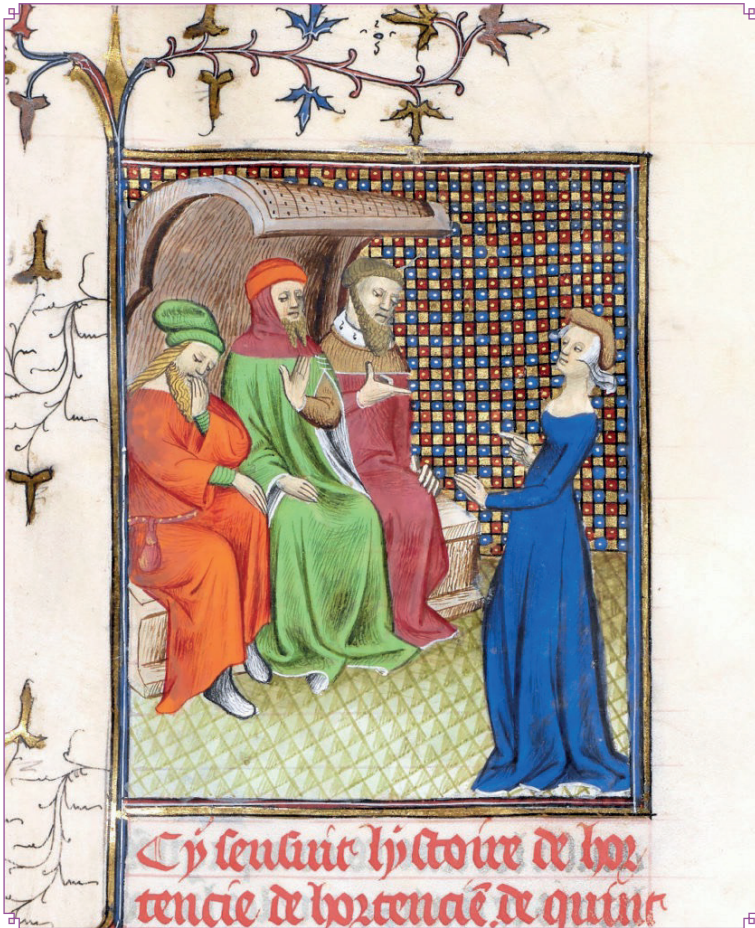 Cy sensuit hystoire de hor
tencie de hortencie de quint